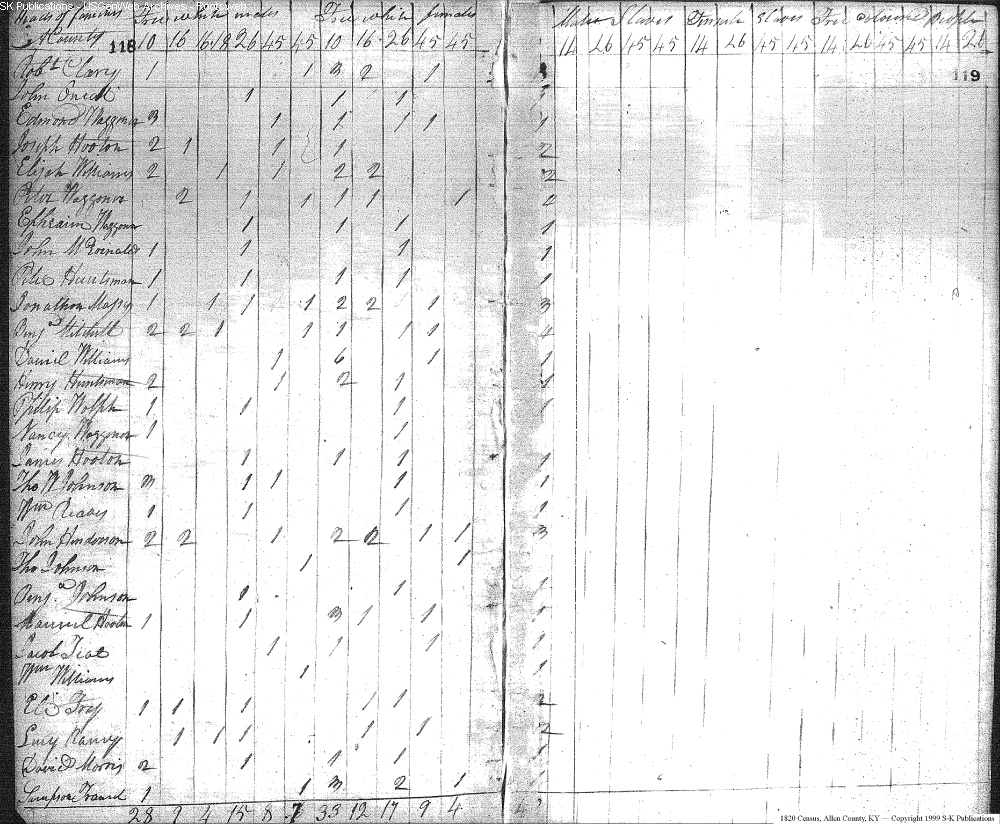 SK Publications - USGenWeb Archives - Rootsweb
Heads of families Free white males Free white females Males Slaves Female Slaves Free Coloured People
County 118 10 16 16.18 26 45 45 10 16 26 45 45 14 26 45 45 14 26 45 45 14 26 45 45 14 26
119
Robt Clary 1 1 3 2 1
John 1 1 1 1
Edmond Waggoner 3 1 1 1 1 1
Joseph Hooton 2 1 1 1 2
Elijah Williams 2 1 1 2 2 2
Peter Waggoner 2 1 1 1 1 1 2
Ephraim Waggoner 1 1 1 1
John 1 1 1 1
Huntsman 1 1 1 1 1
Jonathan 1 1 1 1 2 2 1 3
Benj Mitchell 2 2 1 1 1 1 1 4
Daniel Williams 1 6 1 1
Henry Huntsman 2 1 2 1 1
Philip Wolph 1 1 1 1
Nancy Waggoner 1 1
James Hooton 1 1 1 1
Tho W Johnson 3 1 1 1 1
Wm 1 1 1 1
John Henderson 2 2 1 2 2 1 1 3
Tho Johnson 1 1
Benj Johnson 1 1 1
Hooton 1 1 3 1 1 1
Jacob 1 1 1 1
Wm Williams 1 1
1 1 1 1 1 2
Lucy 1 1 1 1 1 2
David Morris 2 1 1 1 1
Simpson 1 1 3 2 1 1
28 9 4 15 8 7 33 12 17 9 4
1820 Census, Allen County, KY — Copyright 1999 S-K Publications